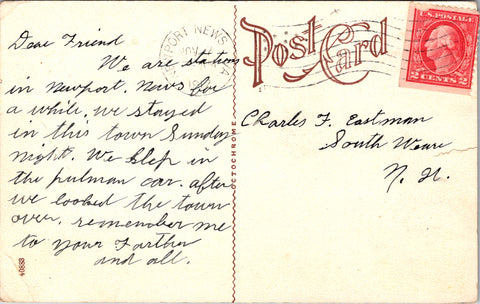 Dear Friend
We are stations
in Newport. News for
a while, we stayed
in this town Sunday
night. We slep in
the pulman car. after
we looked the town
over. remember me
to your Farther
and all.
OCTOCHROME
40883
NEWPORT NEWS
NOV
Post Card
U.S. POSTAGE
2 CENTS 2
Charles F. Eastman
South Weare
N. H.